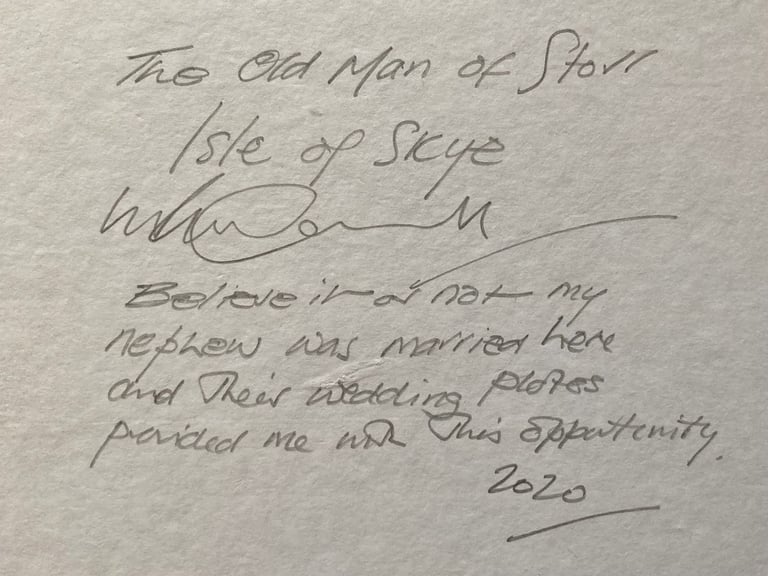 The Old Man of Storr
Isle of Skye
Believe it or not my
nephew was married here
and Their wedding photos
provided me with This opportunity.
2020